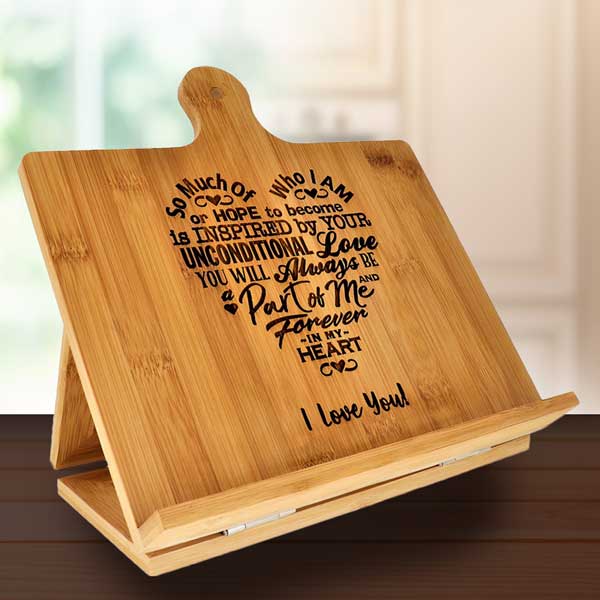 So Much Of Who I AM
or HOPE to become
is INSPIRED by YOUR
UNCONDITIONAL Love
YOU WILL Always BE
a Part of Me AND
Forever
~IN MY~
HEART
I Love You!